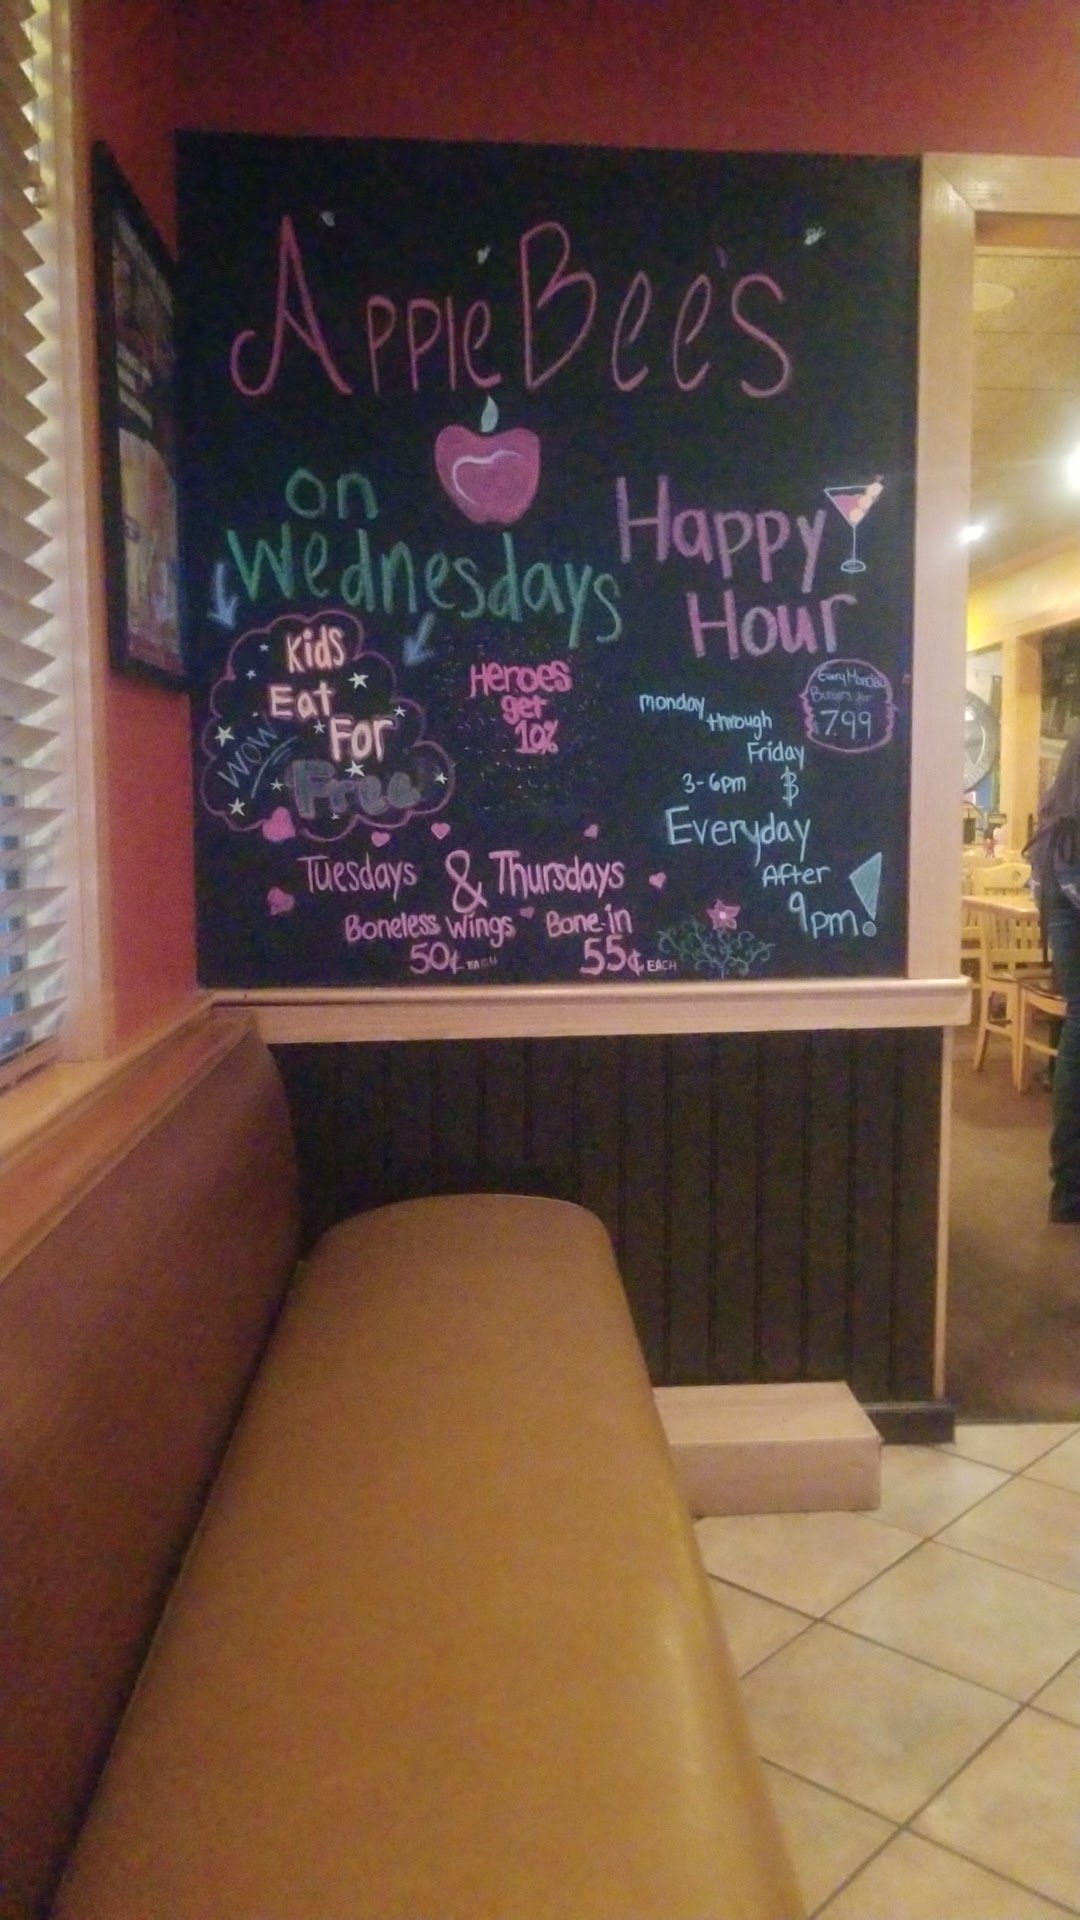 AppleBee's
on
Wednesdays
Kids
Eat
For
WOW
Free
Heroes
get
10%
Happy
Hour
Every Monday
Burgers for
7.99
monday
through
Friday
3-6pm &
Everyday
After
9pm!
Tuesdays & Thursdays
Boneless Wings Bone-in
50¢ EACH 55¢ EACH